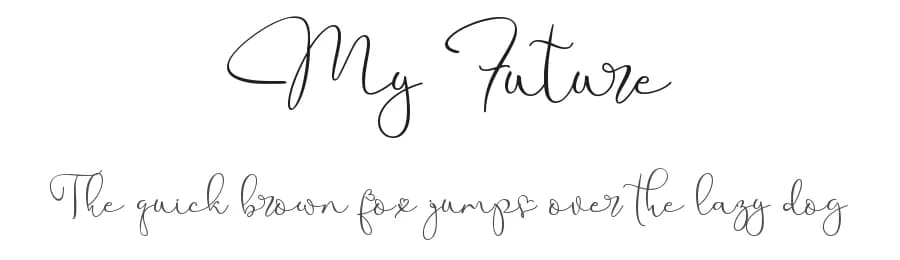 My Future
The quick brown fox jumps over the lazy dog